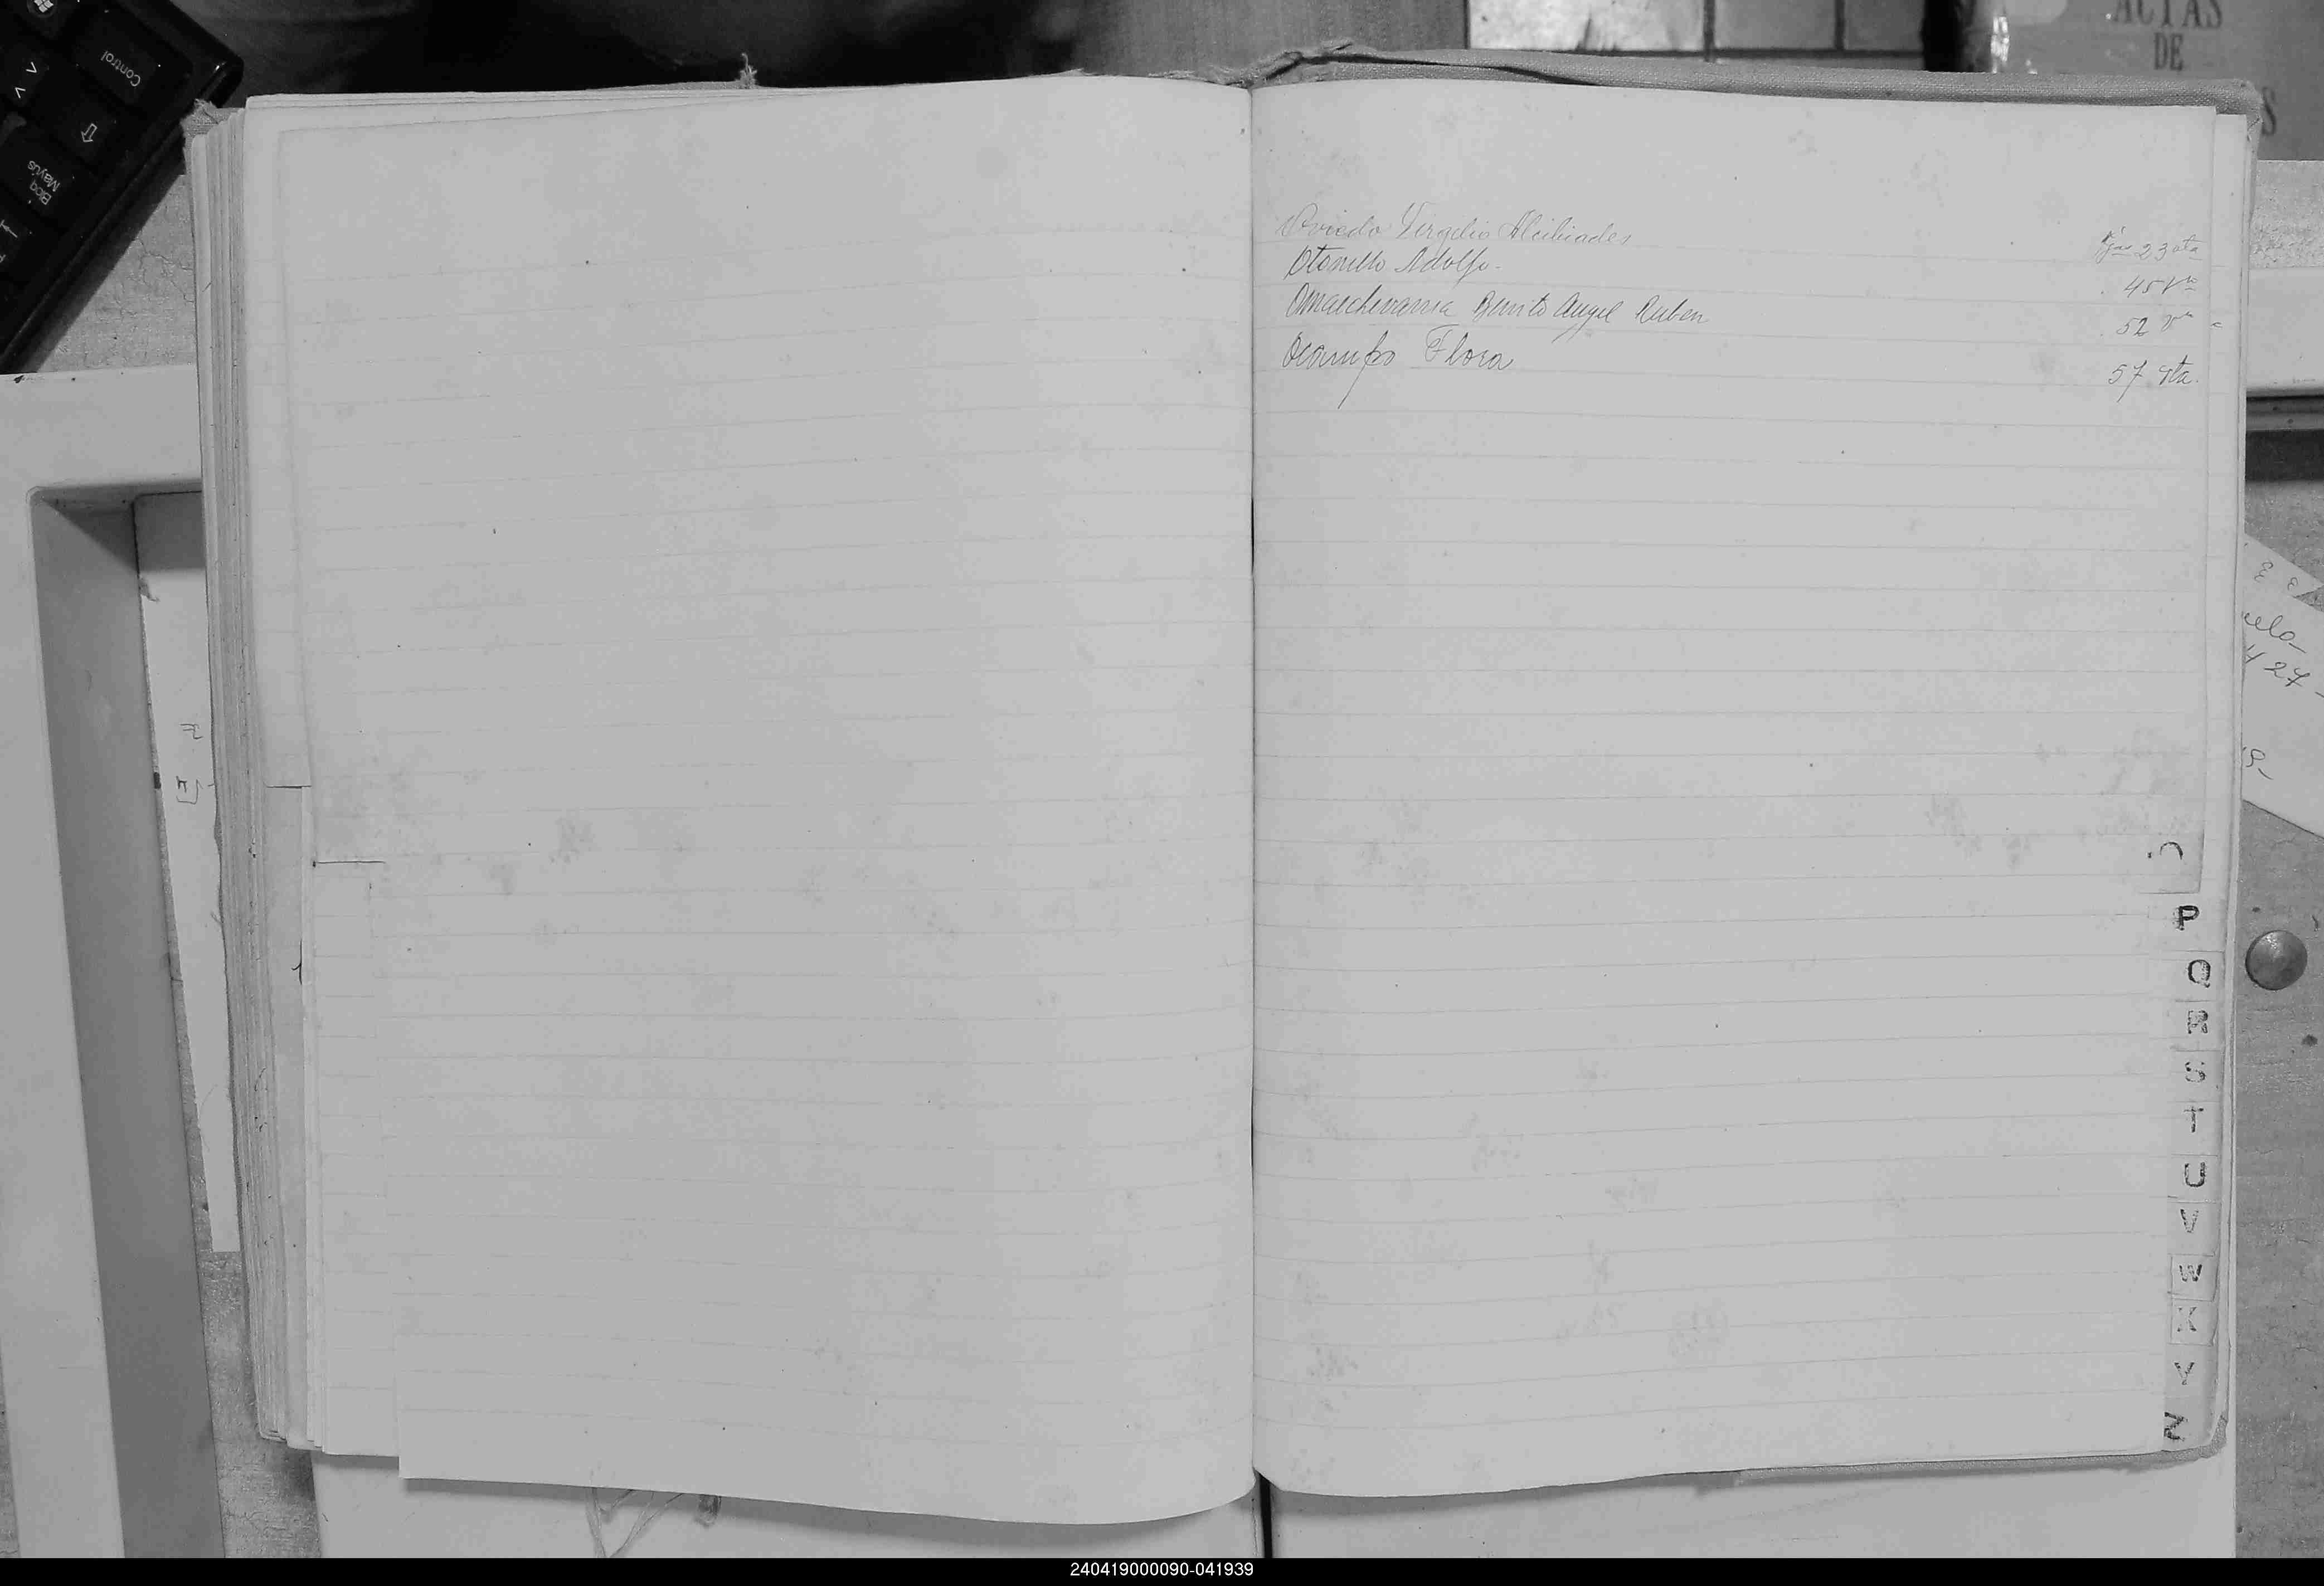 Control
Bloq
Mayús
ACTAS
DE
S
Oviedo Virgilio Alcibiades
23 vta
Otonello Adolfo.
45 Vta
Benito Angel Ruben
52 Vta
Ocampo Flora
57 vta.
O
P
Q
R
S
T
U
V
W
X
Y
Z
240419000090-041939